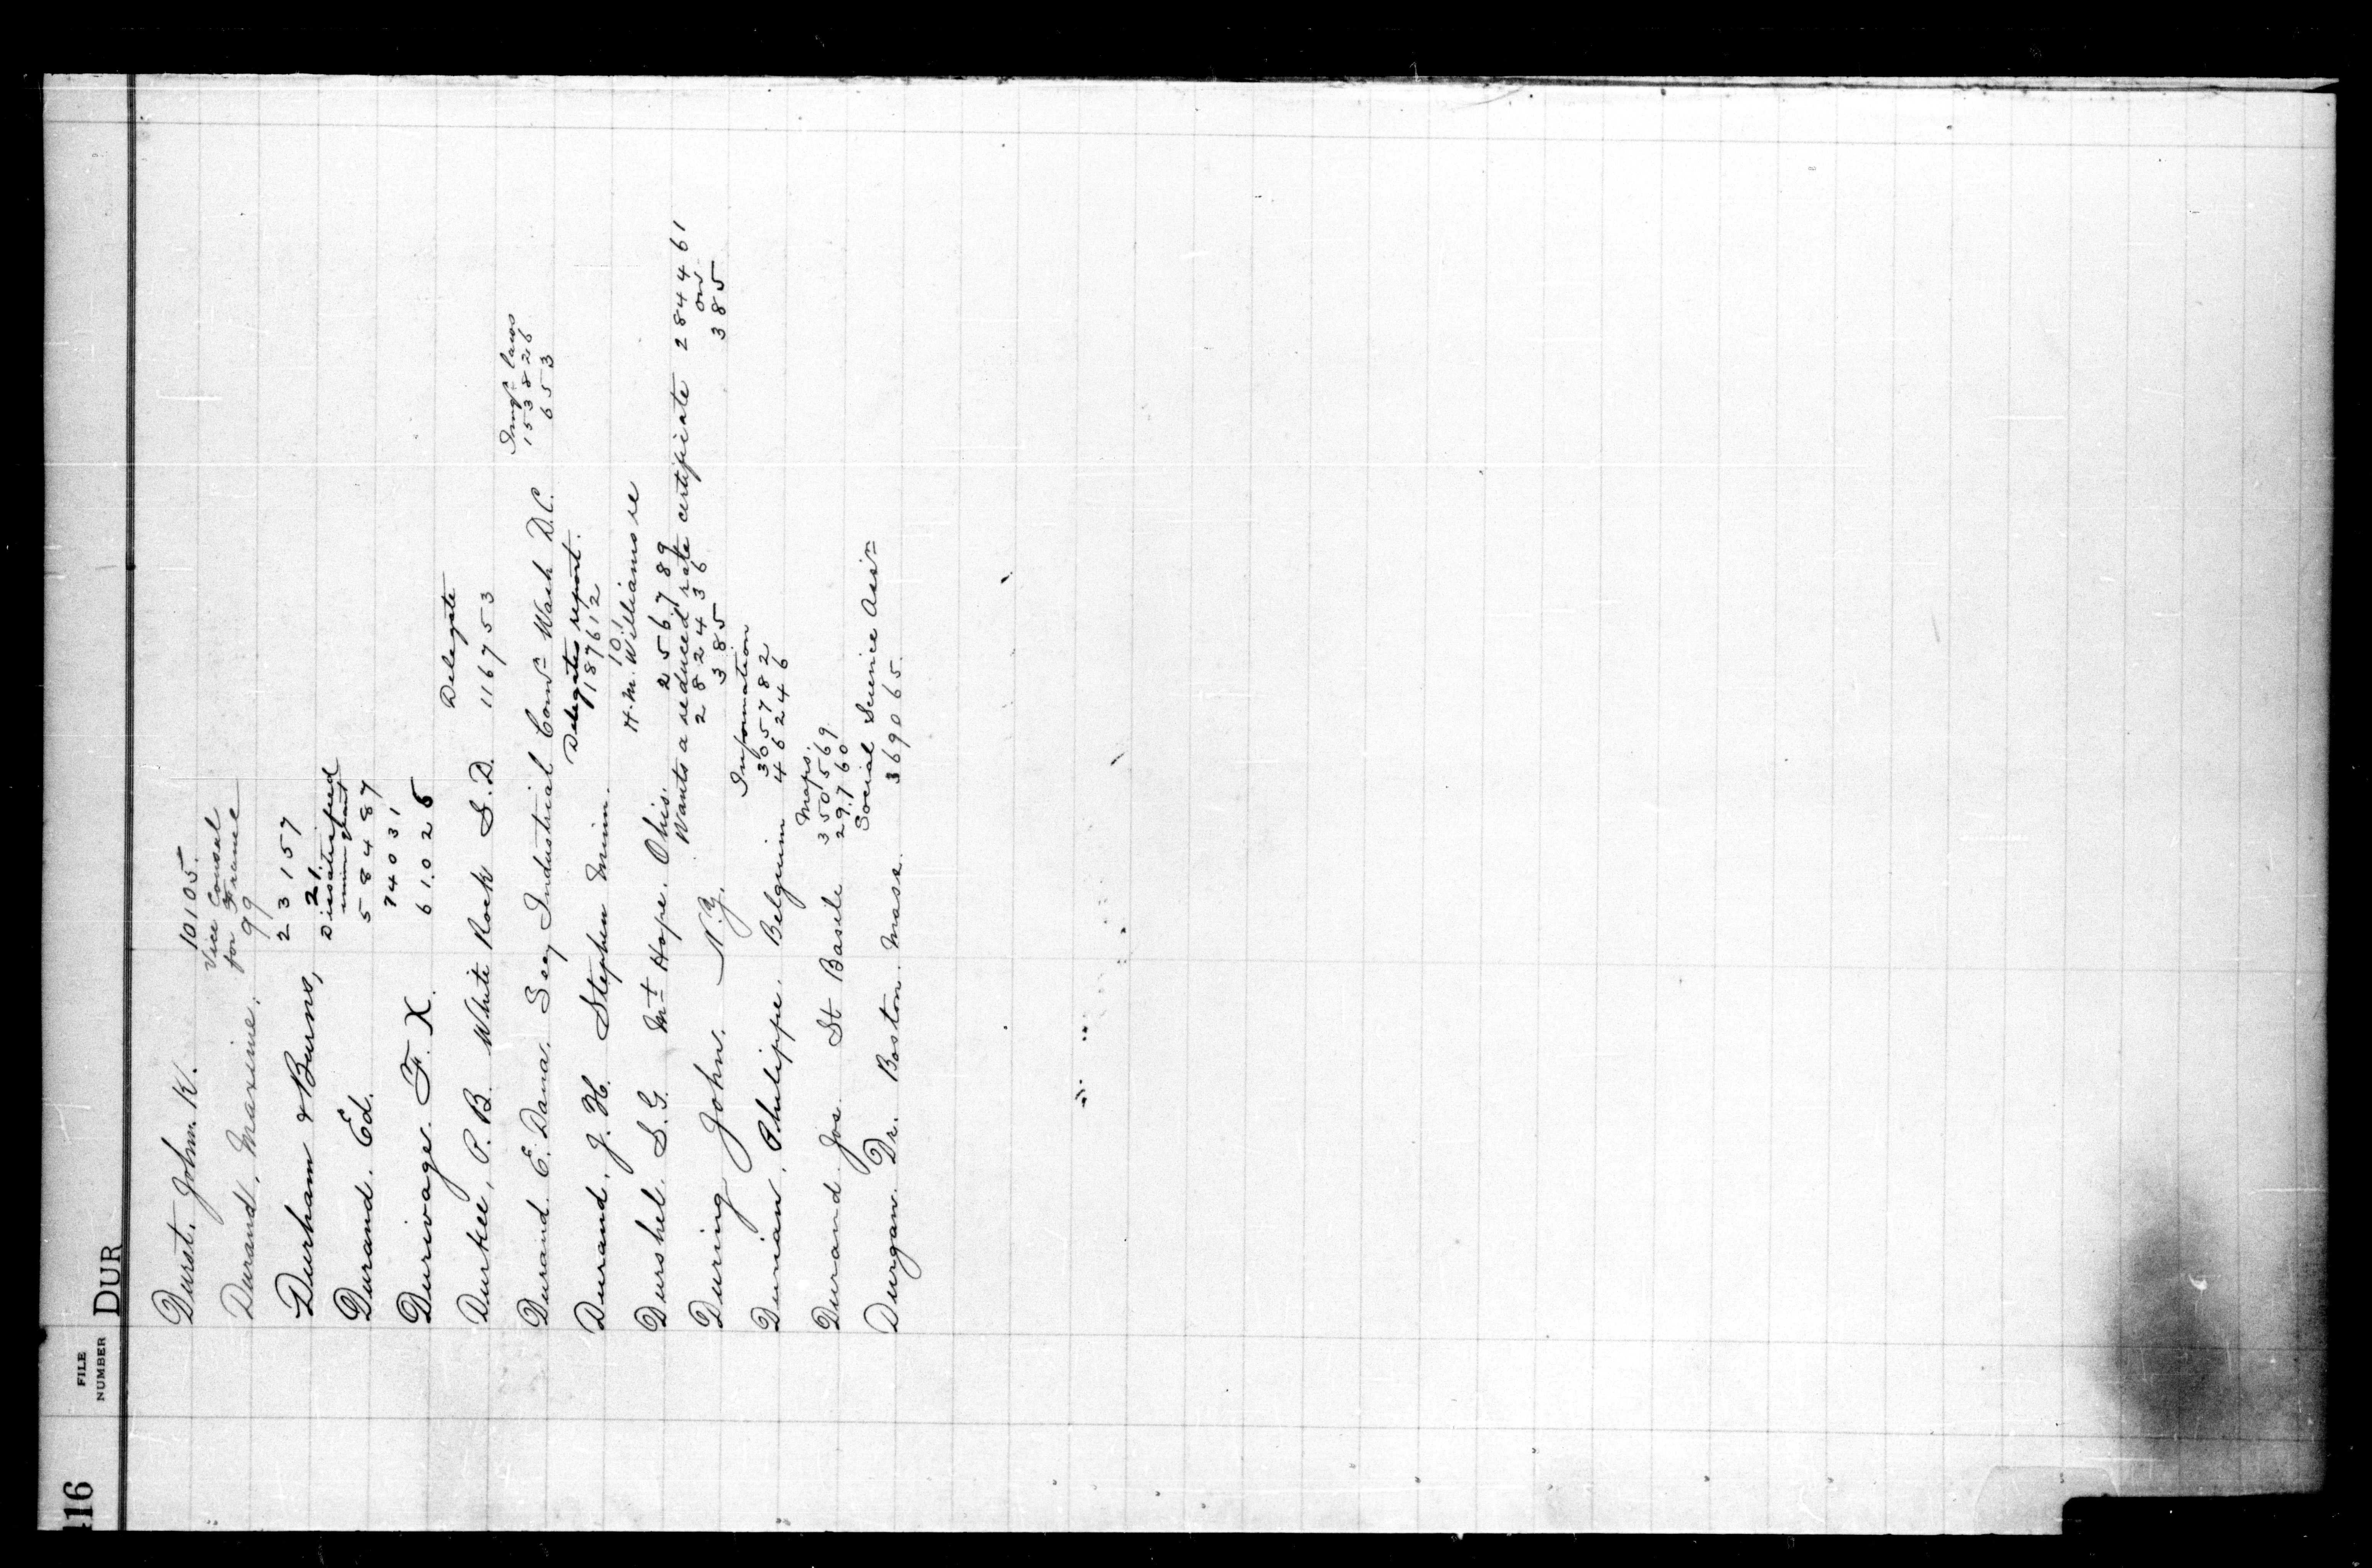 116
FILE
NUMBER
DUR
Durst. John. K. 10105.
Vice Consul
for France
Durand, Maxime. 99
Durham & Burns, 23157
21.
Dissatisfied
immigrant
Durand. Ed. 58487
74031
Durivage. F. X. 61026
Delegate
Durkee, P. B. White Rock S. D. 116753
Immgt laws
153826
Durand. E. Dana. Secy Industrial Comn Wash D.C. 653
Delegates report.
187612
Durand, J. H. Stephen Minn. 10.1
H. M. Williams re
Durshel. S. G. Mt Hope. Ohio. 256789
Wants a reduced rate certificate 284461
282436 on
During John. N.Y. 385 385
Information
305782
Durian, Philippe. Belgium 46246
Maps.
350569
Durand Jos. St Basile 29760
Social Science Assn
Durgan. Dr. Boston. Mass. 369065.